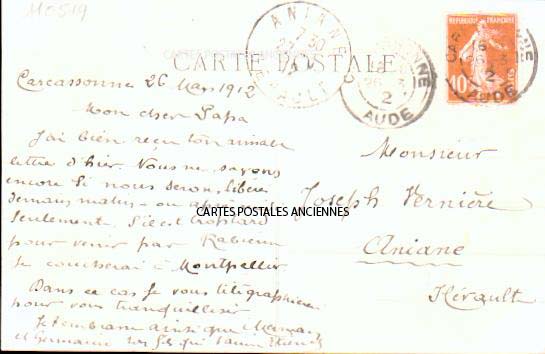 110519
CARTE POSTALE
ANIANE
HERAULT
CARCASSONNE
AUDE
26 3 12
REPUBLIQUE FRANÇAISE
10
Carcassonne 26 Mars 1912
Mon cher Papa
J'ai bien reçu ton aimable
lettre d'hier. Nous ne savons
encore si nous serons libérés
demain matin ou après midi
seulement, S'il est trop tard
pour venir par Rabieux
je coucherai à Montpellier
Dans ce cas je vous télégraphierai
pour vous tranquilliser
Je t'embrasse ainsi que Maman
et Germaine ton fils qui t'aime Etienne
Monsieur
Joseph Vernière
Aniane
Hérault
CARTES POSTALES ANCIENNES